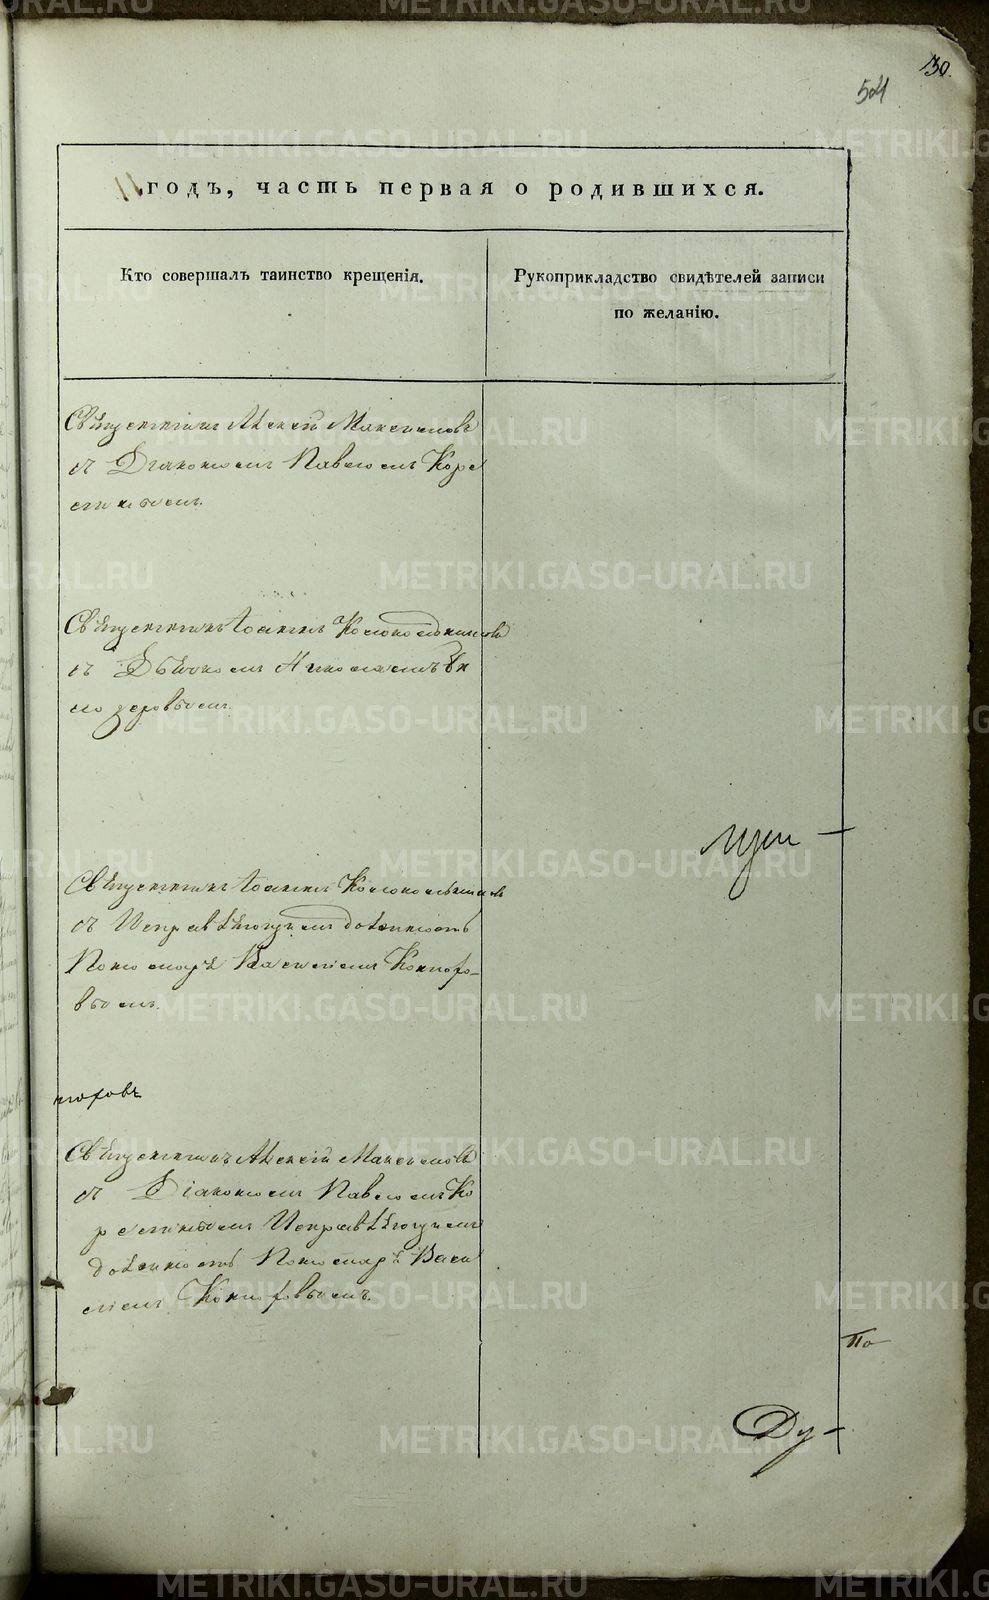 130.
504
годъ, часть первая о родившихся.
Кто совершалъ таинство крещенія.
Рукоприкладство свидѣтелей записи
по желанію.
Священникъ Алексій Максимовъ
съ Діакономъ Павломъ Коре
стинымъ.
Священникъ Іоаннъ Колокольниковъ
съ Дьячкомъ Николаемъ
Священникъ Іоаннъ Колокольниковъ
съ Исправляющимъ должность
Пономаря Василіемъ Конюхо-
вымъ.
нюховъ
Священникъ Алексій Максимовъ
съ Діакономъ Павломъ Ко
рестинымъ Исправляющимъ
должность Пономаря Васи
ліемъ Конюховымъ.
По
Ду-
METRIKI.GASO-URAL.RU